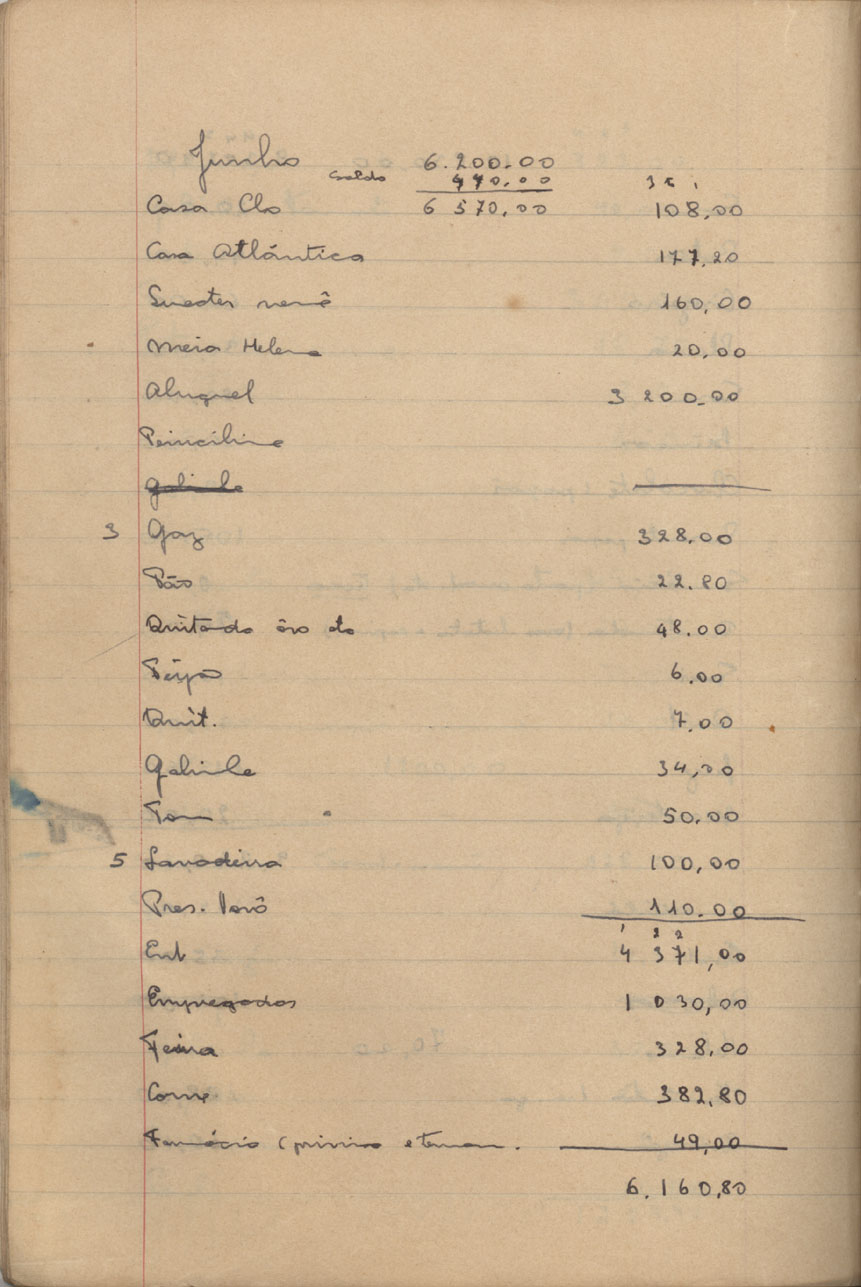 Junho 6.200.00
Saldo 470.00
Casa Clo 6 570,00 108,00
Casa Atlántica 177,20
Sueater nenê 160,00
Meia Helena 20,00
Aluguel 3 200,00
Penicilina
Gabriele
3 Gaz 328.00
Pão 22.80
Quitanda 48.00
Feijão 6.00
Quit. 7,00
Gabriele 34,00
Tom 50.00
5 Lavadeira 100,00
Pres. Vovô 110.00
Ent 4 371,00
Empregados 1 030,00
Feira 328,00
Carne 382,80
Farmácia ( 49,00
6.160,80